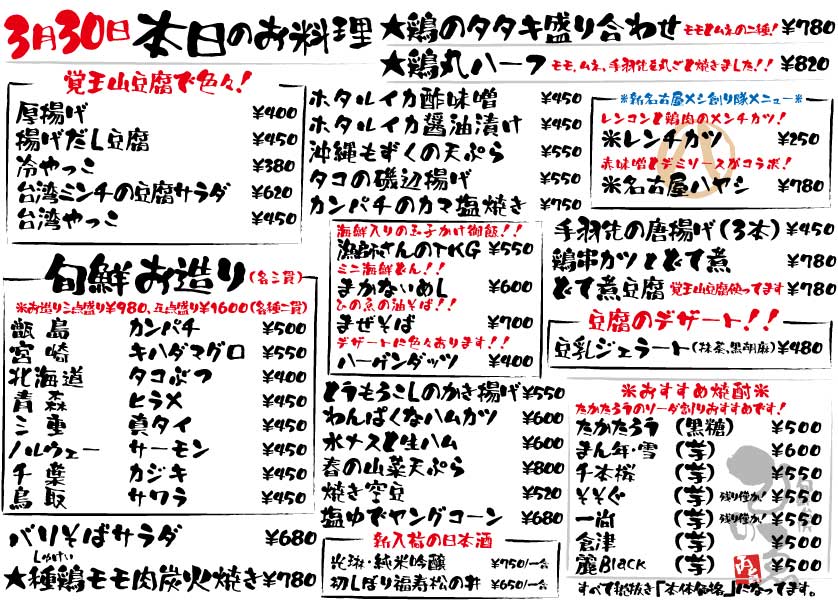 3月30日 本日のお料理
★鶏のタタキ盛り合わせ モモとムネの二種! ¥780
★鶏丸ハーフ モモ、ムネ、手羽先を丸ごと焼きました!! ¥820
覚王山豆腐で色々!
厚揚げ ¥400
揚げだし豆腐 ¥450
冷やっこ ¥380
台湾ミンチの豆腐サラダ ¥620
台湾やっこ ¥450
旬鮮お造り(各二貫)
※お造り三点盛り¥980、五点盛り¥1600(各種二貫)
甑島 カンパチ ¥500
宮崎 キハダマグロ ¥550
北海道 タコぶつ ¥400
青森 ヒラメ ¥450
三重 真タイ ¥450
ノルウェー サーモン ¥450
千葉 カジキ ¥450
鳥取 サワラ ¥450
バリそばサラダ ¥680
しゅけい
★種鶏モモ肉炭火焼き ¥780
ホタルイカ酢味噌 ¥450
ホタルイカ醤油漬け ¥450
沖縄もずくの天ぷら ¥550
タコの磯辺揚げ ¥550
カンパチのカマ塩焼き ¥750
海鮮入りの玉子かけ御飯!!
漁師さんのTKG ¥550
ミニ海鮮どん!!
まかないめし ¥600
ひの魚の油そば!!
まぜそば ¥700
デザートに色々あります!!
ハーゲンダッツ ¥400
とうもろこしのかき揚げ ¥550
わんぱくなハムカツ ¥600
水ナスと生ハム ¥600
春の山菜天ぷら ¥800
焼き空豆 ¥520
塩ゆでヤングコーン ¥680
新入荷の日本酒
光琳・純米吟醸 ¥750/一合
初しぼり福寿松の井 ¥650/一合
※新名古屋メシ創り隊メニュー※
レンコンと鶏肉のメンチカツ!
※レンチカツ ¥250
赤味噌とデミソースがコラボ!
※名古屋ハヤシ ¥780
手羽先の唐揚げ(3本) ¥450
鶏串カツとどて煮 ¥780
どて煮豆腐 覚王山豆腐使ってます ¥780
豆腐のデザート!!
豆乳ジェラート(抹茶、黒胡麻) ¥480
※おすすめ焼酎※
たかたろうのソーダ割りおすすめです!
たかたろう (黒糖) ¥500
まん年・雪 (芋) ¥600
千本桜 (芋) ¥550
そそぐ (芋) 残り僅か! ¥550
一尚 (芋) 残り僅か! ¥550
倉津 (芋) ¥500
麗Black (芋) ¥500
すべて税抜き「本体価格」になってます。